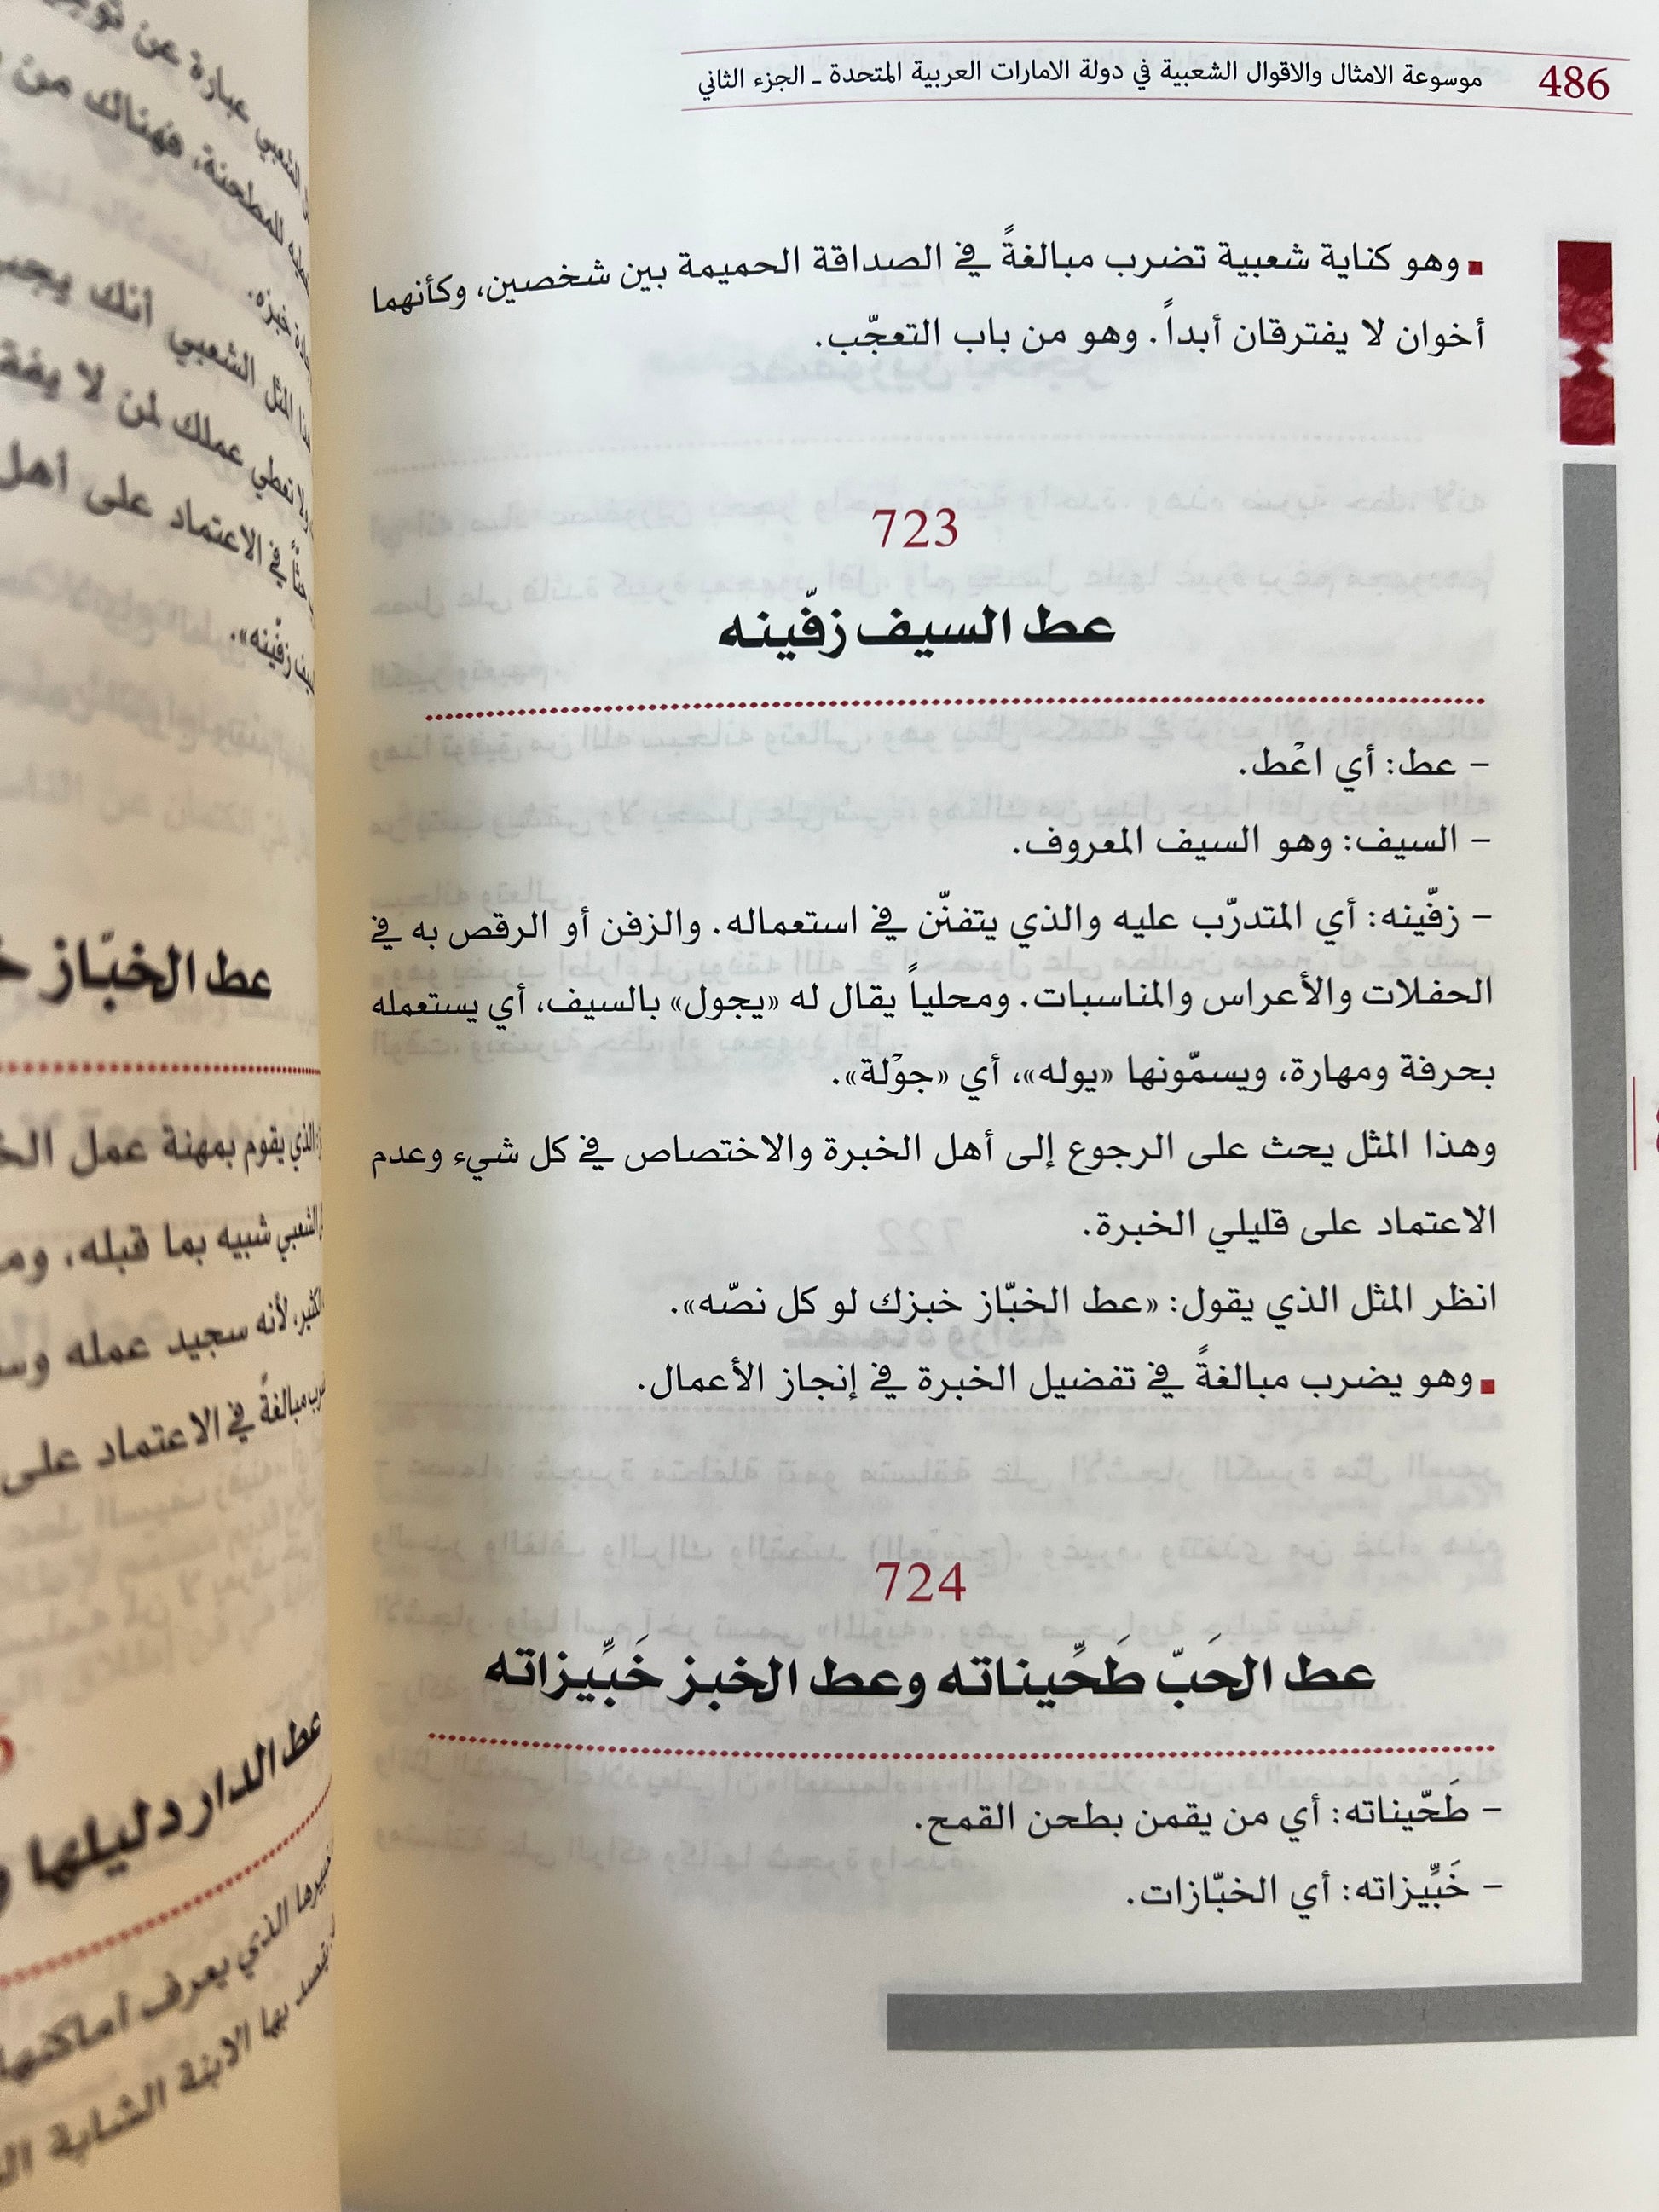 486 موسوعة الامثال والاقوال الشعبية في دولة الامارات العربية المتحدة ـ الجزء الثاني
■ وهو كناية شعبية تضرب مبالغةً في الصداقة الحميمة بين شخصين، وكأنهما
أخوان لا يفترقان أبداً. وهو من باب التعجّب.
723
عط السيف زفّينه
– عط: أي اعْط.
– السيف: وهو السيف المعروف.
– زفّينه: أي المتدرّب عليه والذي يتفنّن في استعماله. والزفن أو الرقص به في
الحفلات والأعراس والمناسبات. ومحلياً يقال له «يجول» بالسيف، أي يستعمله
بحرفة ومهارة، ويسمّونها «يوله»، أي «جوْلة».
وهذا المثل يحث على الرجوع إلى أهل الخبرة والاختصاص في كل شيء وعدم
الاعتماد على قليلي الخبرة.
انظر المثل الذي يقول: «عط الخبّاز خبزك لو كل نصّه».
■ وهو يضرب مبالغةً في تفضيل الخبرة في إنجاز الأعمال.
724
عط الحَبّ طَحِّيناته وعط الخبز خَبِّيزاته
– طَحّيناته: أي من يقمن بطحن القمح.
– خَبِّيزاته: أي الخبّازات.
الشعبي عبارة عن
للمطحنة، فهناك من
خبزه.
المثل الشعبي أنك يجب
ولا تعطي عملك لمن لا
في الاعتماد على أهل
زفّينه».
عط الخبّاز
الذي يقوم بمهنة عمل
الشعبي شبيه بما قبله،
لأنه سجيد عمله
مبالغةً في الاعتماد على
عط الدار دليلها
الذي يعرف أماكنها
بها الابنة الشابة